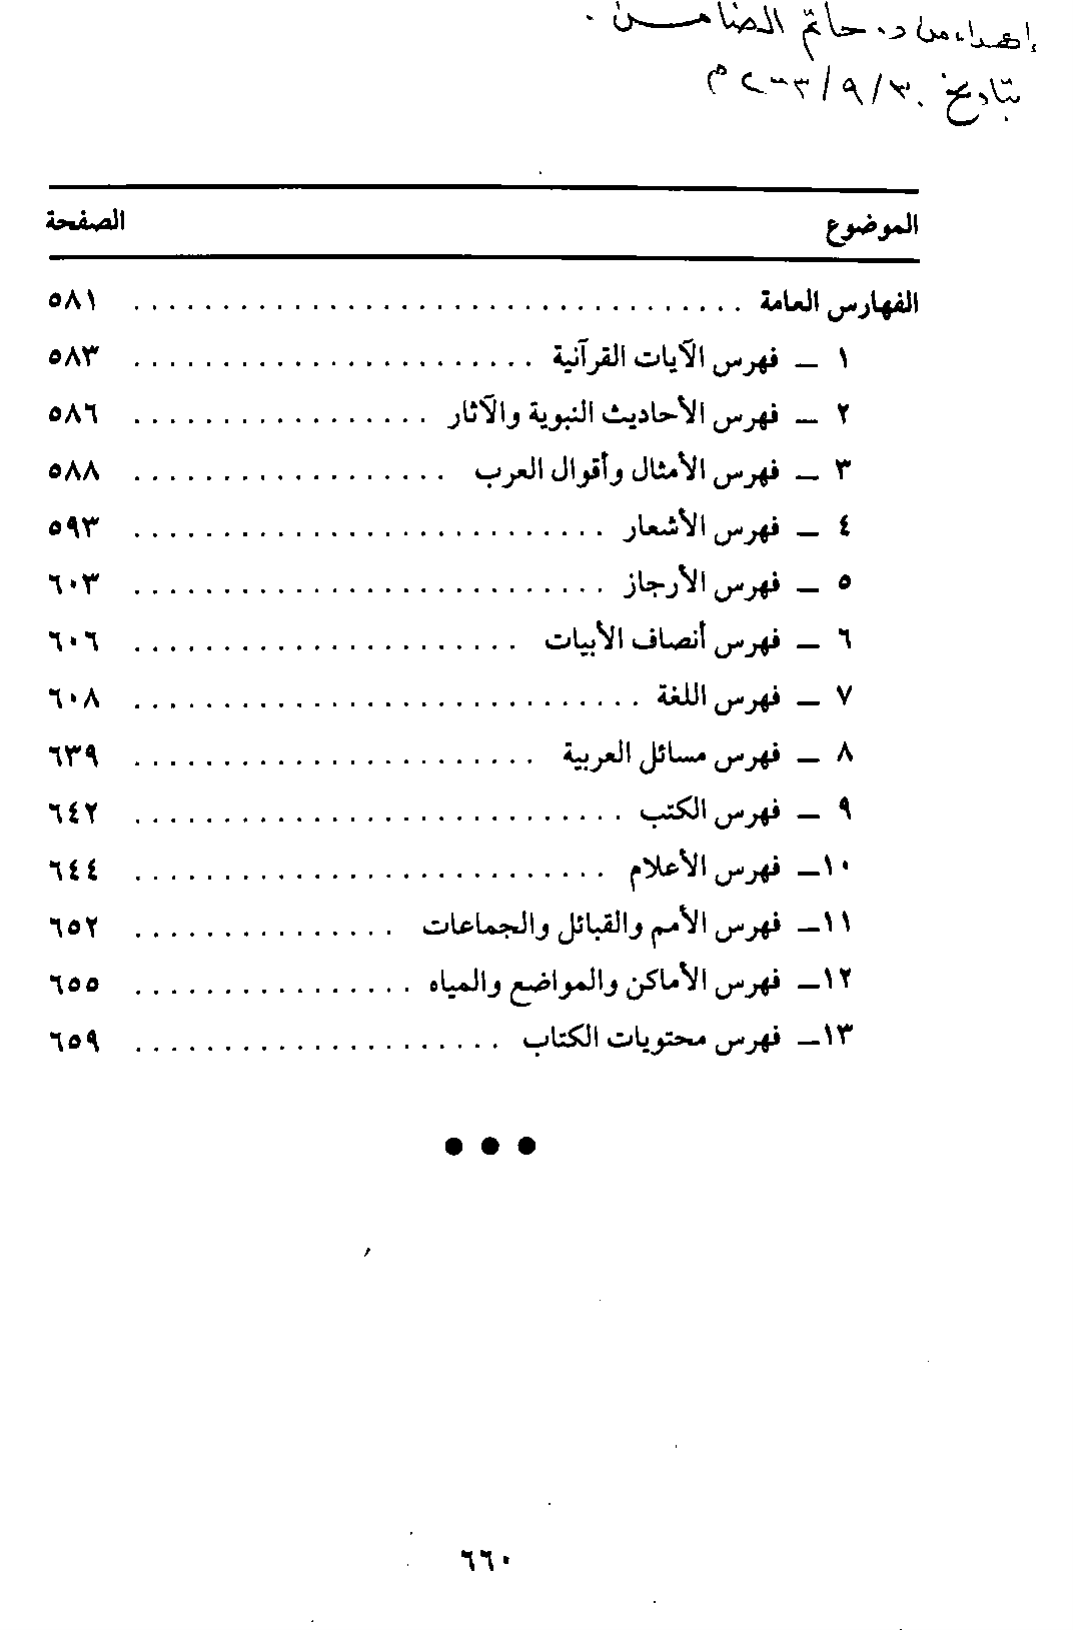 إهداء من د. حاتم الضامن.
بتاريخ ٣٠/٩/٢٠٠٣م
الموضوع الصفحة
الفهارس العامة . . . . . . . . . . . . . . . . . . . . . . . . . . . . . . . . . . . ٥٨١
١ ــ فهرس الآيات القرآنية . . . . . . . . . . . . . . . . . . . . . . . ٥٨٣
٢ ــ فهرس الأحاديث النبوية والآثار . . . . . . . . . . . . . . . . . ٥٨٦
٣ ــ فهرس الأمثال وأقوال العرب . . . . . . . . . . . . . . . . . . ٥٨٨
٤ ــ فهرس الأشعار . . . . . . . . . . . . . . . . . . . . . . . . . . . ٥٩٣
٥ ــ فهرس الأرجاز . . . . . . . . . . . . . . . . . . . . . . . . . . . ٦٠٣
٦ ــ فهرس أنصاف الأبيات . . . . . . . . . . . . . . . . . . . . . . ٦٠٦
٧ ــ فهرس اللغة . . . . . . . . . . . . . . . . . . . . . . . . . . . . . ٦٠٨
٨ ــ فهرس مسائل العربية . . . . . . . . . . . . . . . . . . . . . . . ٦٣٩
٩ ــ فهرس الكتب . . . . . . . . . . . . . . . . . . . . . . . . . . . . ٦٤٢
١٠ــ فهرس الأعلام . . . . . . . . . . . . . . . . . . . . . . . . . . . ٦٤٤
١١ــ فهرس الأمم والقبائل والجماعات . . . . . . . . . . . . . . . ٦٥٢
١٢ــ فهرس الأماكن والمواضع والمياه . . . . . . . . . . . . . . . . ٦٥٥
١٣ــ فهرس محتويات الكتاب . . . . . . . . . . . . . . . . . . . . . ٦٥٩
● ● ●
٦٦٠